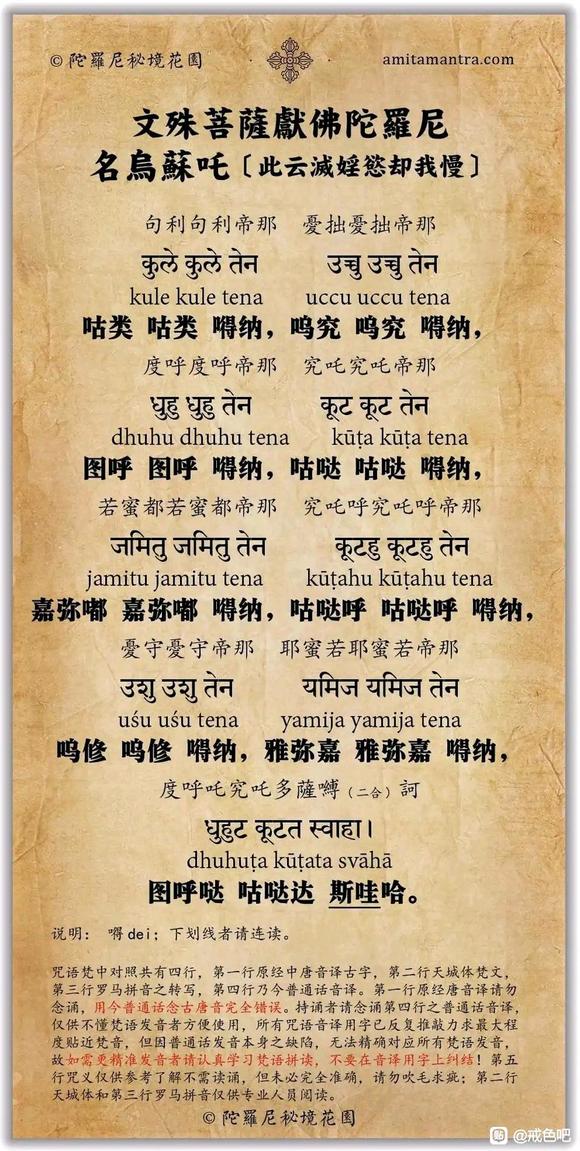 © 陀羅尼秘境花園 amitamantra.com
文殊菩薩獻佛陀羅尼
名烏蘇吒〔此云滅婬慾却我慢〕
句利句利帝那 憂拙憂拙帝那
कुले कुले तेन उच्चु उच्चु तेन
kule kule tena uccu uccu tena
咕类 咕类 嘚纳，呜究 呜究 嘚纳，
度呼度呼帝那 究吒究吒帝那
धुहु धुहु तेन कूट कूट तेन
dhuhu dhuhu tena kūṭa kūṭa tena
图呼 图呼 嘚纳，咕哒 咕哒 嘚纳，
若蜜都若蜜都帝那 究吒呼究吒呼帝那
जमितु जमितु तेन कूटहु कूटहु तेन
jamitu jamitu tena kūṭahu kūṭahu tena
嘉弥嘟 嘉弥嘟 嘚纳，咕哒呼 咕哒呼 嘚纳，
憂守憂守帝那 耶蜜若耶蜜若帝那
उशु उशु तेन यमिज यमिज तेन
uśu uśu tena yamija yamija tena
呜修 呜修 嘚纳，雅弥嘉 雅弥嘉 嘚纳，
度呼吒究吒多薩嚩（二合）訶
धुहुट कूटत स्वाहा।
dhuhuṭa kūṭata svāhā
图呼哒 咕哒达 斯哇哈。
说明： 嘚 dei；下划线者请连读。
咒语梵中对照共有四行，第一行原经中唐音译古字，第二行天城体梵文，
第三行罗马拼音之转写，第四行乃今普通话音译。第一行原经唐音译请勿
念诵，用今普通话念古唐音完全错误。持诵者请念诵第四行之普通话音译，
仅供不懂梵语发音者方便使用，所有咒语音译用字已反复推敲力求最大程
度贴近梵音，但因普通话发音本身之缺陷，无法精确对应所有梵语发音，
故如需更精准发音者请认真学习梵语拼读，不要在音译用字上纠结！第五
行咒义仅供参考了解不需读诵，但未必完全准确，请勿吹毛求疵；第二行
天城体和第三行罗马拼音仅供专业人员阅读。
© 陀羅尼秘境花園
贴 @戒色吧